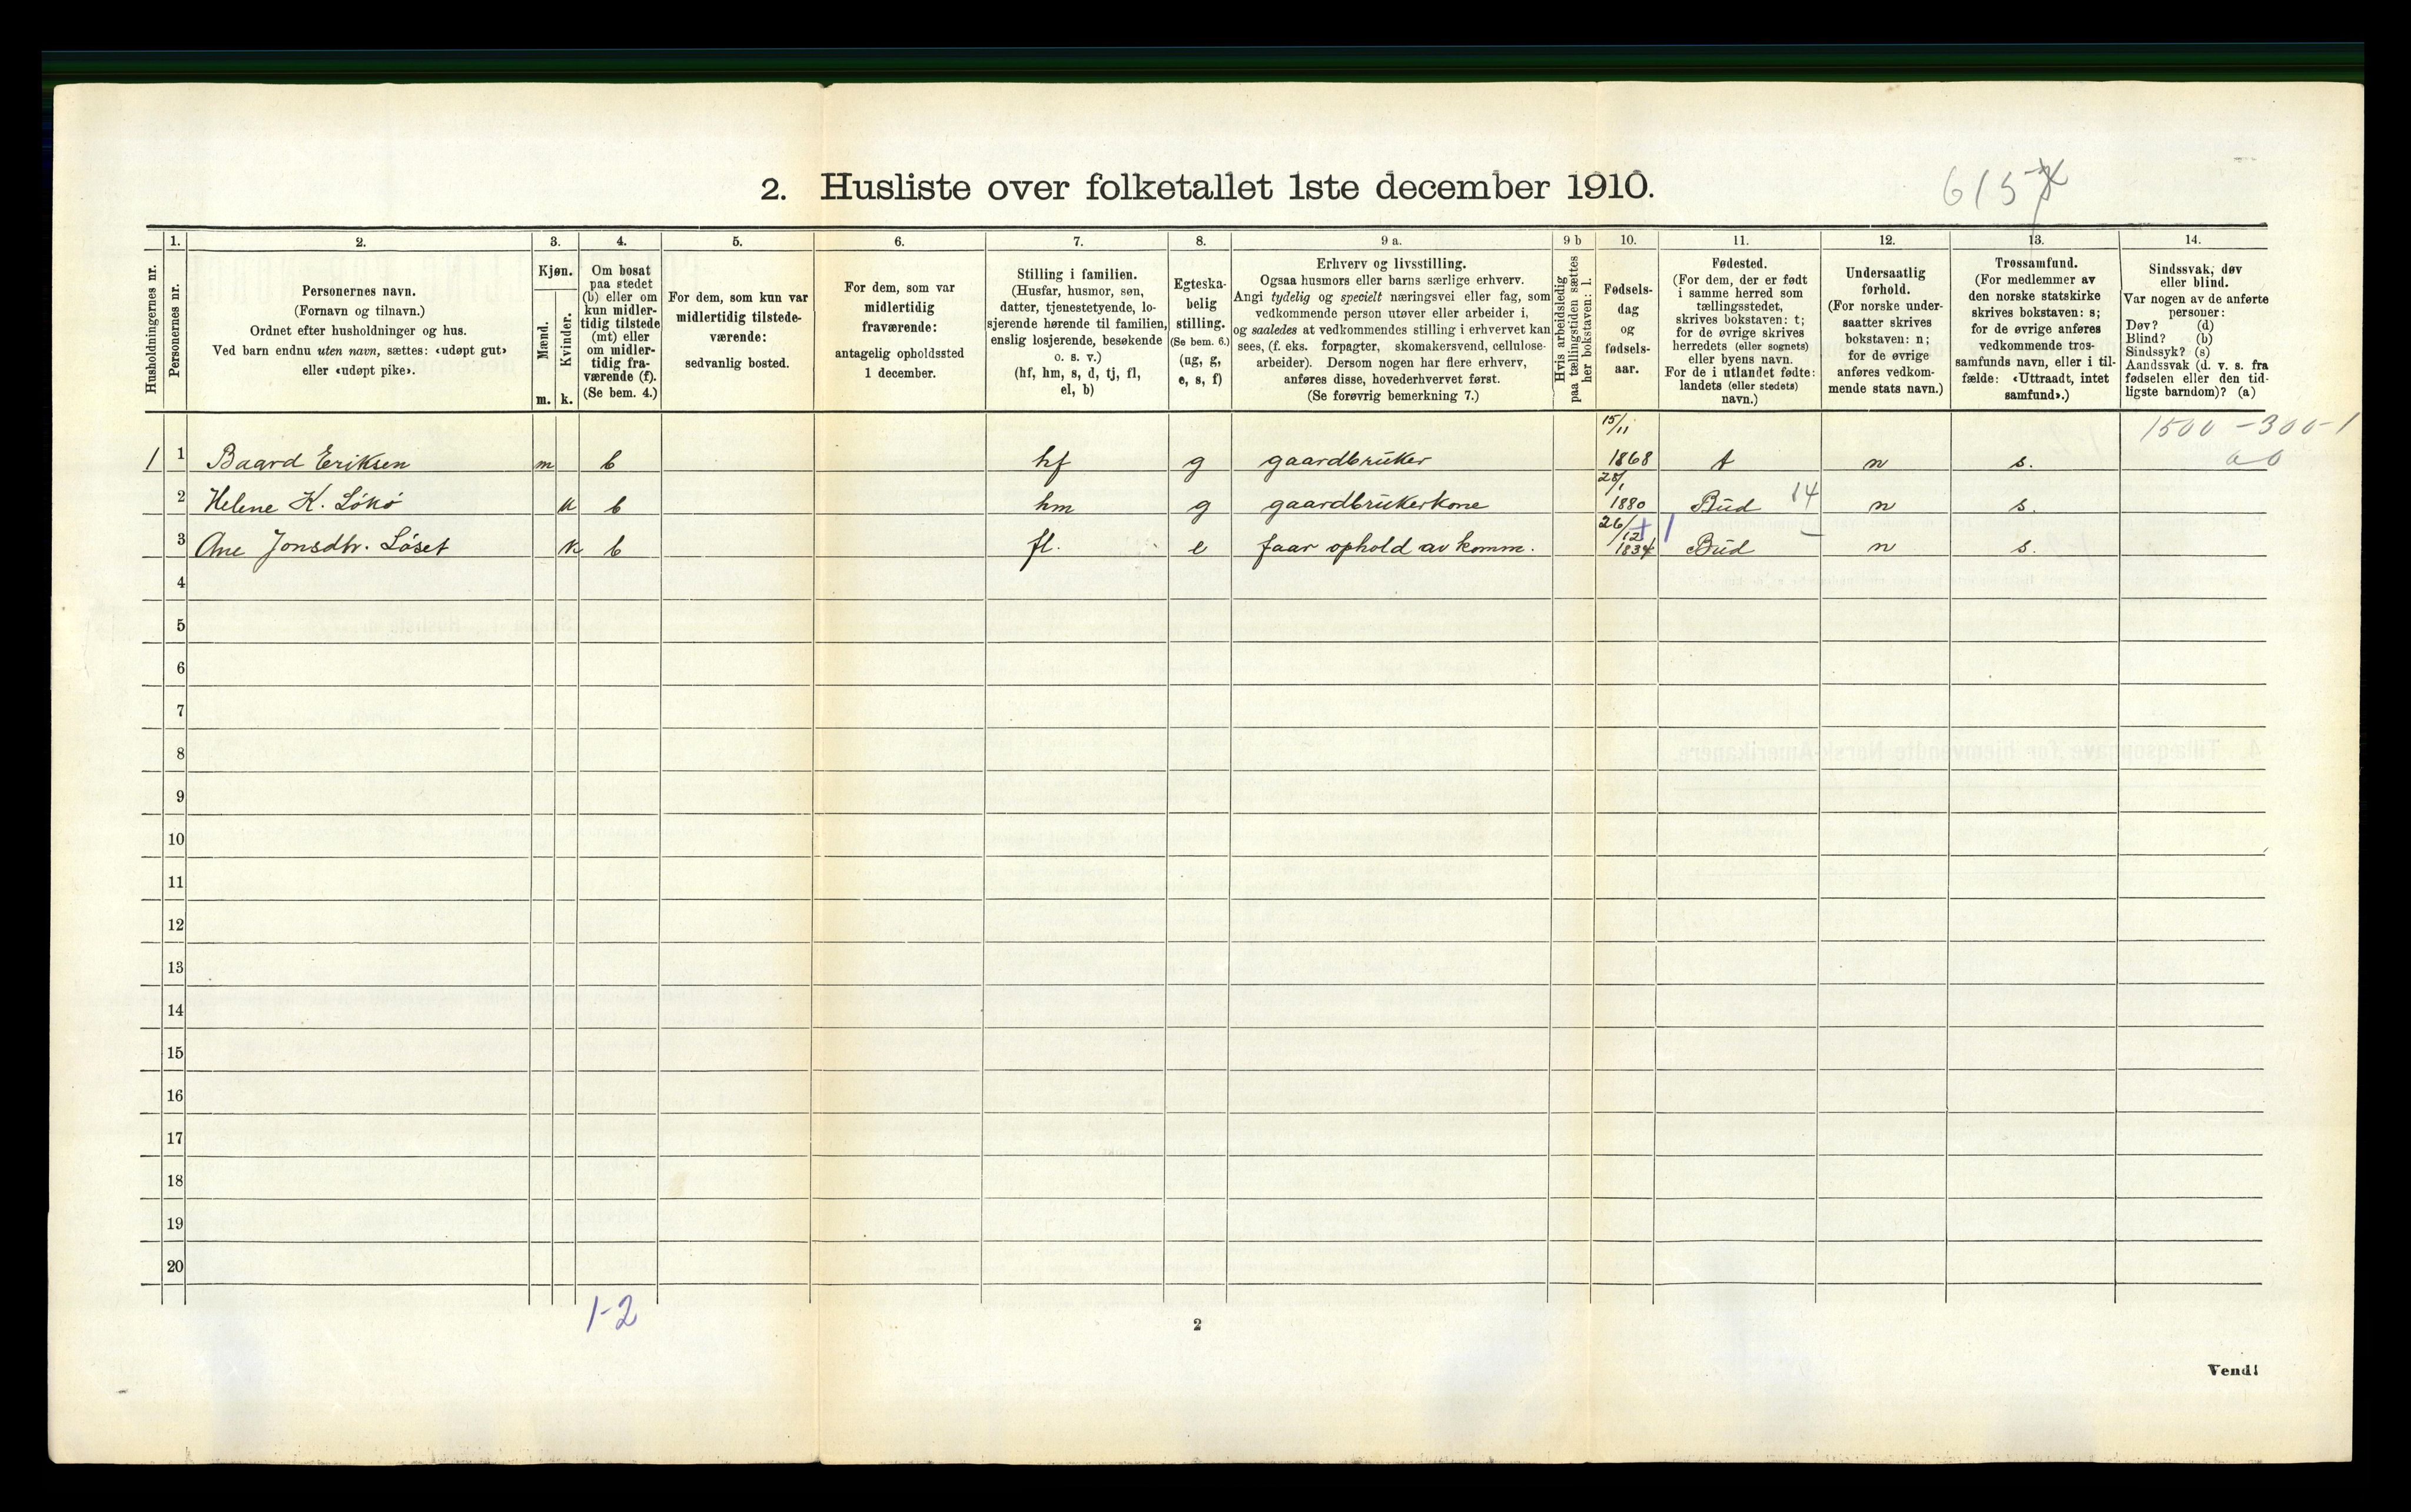 2. Husliste over folketallet 1ste december 1910.
Husholdningernes nr.
1.
Personernes nr.
2.
Personernes navn.
(Fornavn og tilnavn.)
Ordnet efter husholdninger og hus.
Ved barn endnu uten navn, sættes: «udøpt gut»
eller «udøpt pike».
3.
Kjøn.
Mænd.
Kvinder.
m. k.
4.
Om bosat
paa stedet
(b) eller om
kun midler-
tidig tilstede
(mt) eller
om midler-
tidig fra-
værende (f).
(Se bem. 4.)
5.
For dem, som kun var
midlertidig tilstede-
værende:
sedvanlig bosted.
6.
For dem, som var
midlertidig
fraværende:
antagelig opholdssted
1 december.
7.
Stilling i familien.
(Husfar, husmor, søn,
datter, tjenestetyende, lo-
sjerende hørende til familien,
enslig losjerende, besøkende
o. s. v.)
(hf, hm, s, d, tj, fl,
el, b)
8.
Egteska-
belig
stilling.
(Se bem. 6.)
(ug, g,
e, s, f)
9 a.
Erhverv og livsstilling.
Ogsaa husmors eller barns særlige erhverv.
Angi tydelig og specielt næringsvei eller fag, som
vedkommende person utøver eller arbeider i,
og saaledes at vedkommendes stilling i erhvervet kan
sees, (f. eks. forpagter, skomakersvend, cellulose-
arbeider). Dersom nogen har flere erhverv,
anføres disse, hovederhvervet først.
(Se forøvrig bemerkning 7.)
9 b
Hvis arbeidsledig
paa tællingstiden sættes
her bokstaven: l.
10.
Fødsels-
dag
og
fødsels-
aar.
11.
Fødested.
(For dem, der er født
i samme herred som
tællingsstedet,
skrives bokstaven: t;
for de øvrige skrives
herredets (eller sognets)
eller byens navn.
For de i utlandet fødte:
landets (eller stedets)
navn.)
12.
Undersaatlig
forhold.
(For norske under-
saatter skrives
bokstaven: n;
for de øvrige
anføres vedkom-
mende stats navn.)
13.
Trossamfund.
(For medlemmer av
den norske statskirke
skrives bokstaven: s;
for de øvrige anføres
vedkommende tros-
samfunds navn, eller i til-
fælde: «Uttraadt, intet
samfund».)
14.
Sindssvak, døv
eller blind.
Var nogen av de anførte
personer:
Døv? (d)
Blind? (b)
Sindssyk? (s)
Aandssvak (d. v. s. fra
fødselen eller den tid-
ligste barndom)? (a)
1500 - 300 - 1
1 1 Baard Eriksen m b hf g gaardbruker 15/11 1868 t n s.
2 Helene K. Løkø k b hm g gaardbrukerkone 1880 Bud 14 n s.
3 Ane Jonsdtr. Løset k b fl. e faar ophold av komm. 26/12 1834 Bud n s.
4
5
6
7
8
9
10
11
12
13
14
15
16
17
18
19
20
1-2
2
Vend!